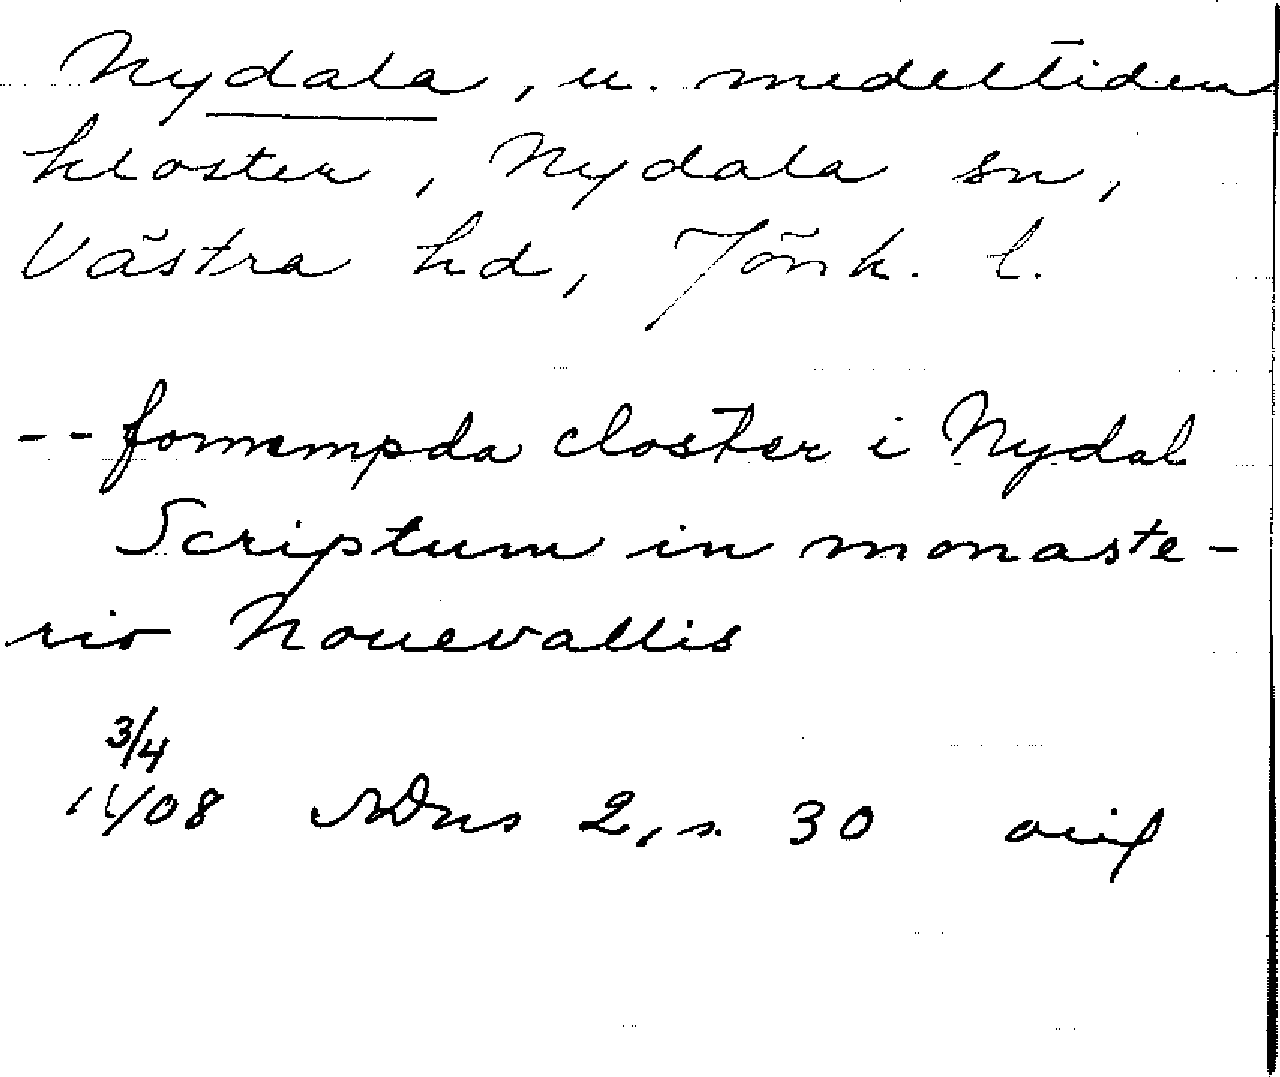 Nydala, u. medeltidens
kloster, Nydala sn,
Västra hd, Jönk. l.
-- fornempda closter i Nydal
Scriptum in monaste-
rio Nouevallis
3/4
1408 SDns 2, s. 30